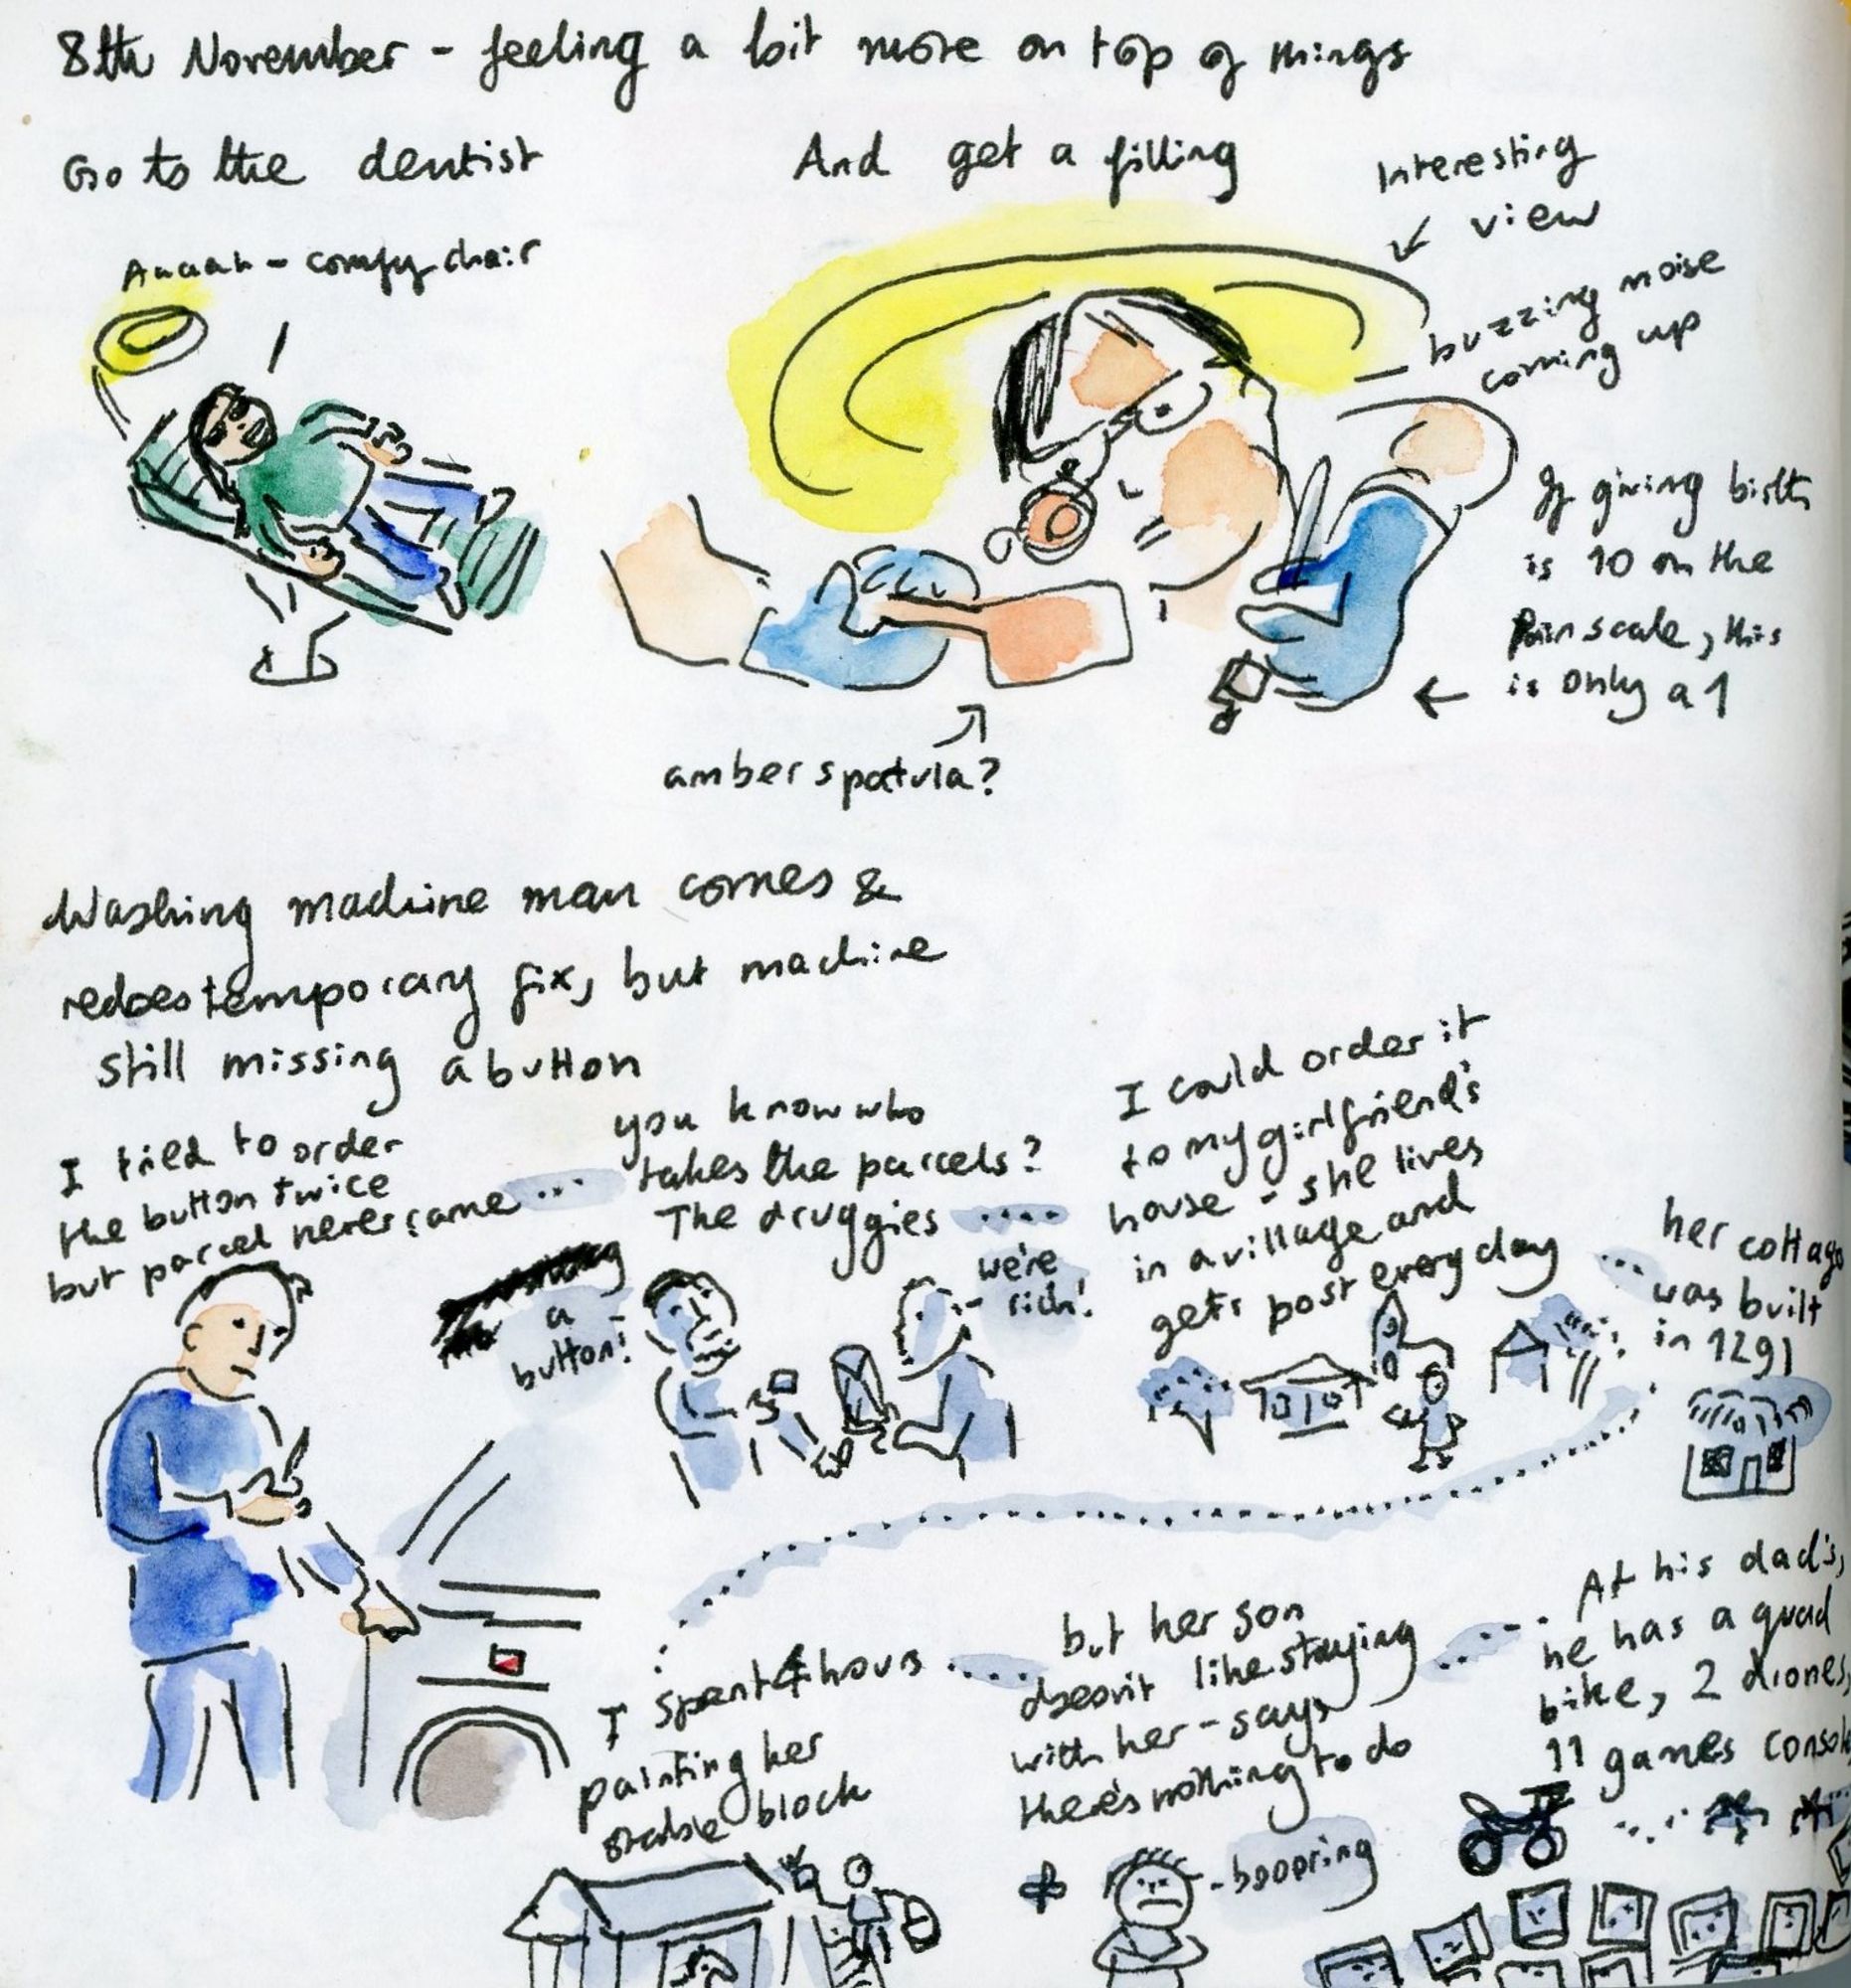 8th November - feeling a bit more on top of things
Go to the dentist
And get a filling
Aaaah - comfy chair
Interesting
view
buzzing noise
coming up
If giving birth
is 10 on the
Pain scale, this
is only a 1
amber spatula?
Washing machine man comes &
redoes temporary fix, but machine
still missing a button
I tried to order
the button twice
but parcel never came ...
you know who
takes the parcels?
The druggies ....
a
button!
we're
rich!
I could order it
to my girlfriend's
house - she lives
in a village and
gets post every day ...
her cottage
was built
in 1291
I spent 4 hours ....
painting her
stable block
but her son
doesn't like staying
with her - says
there's nothing to do
- boooring
... At his dad's,
he has a quad
bike, 2 drones,
11 games consoles